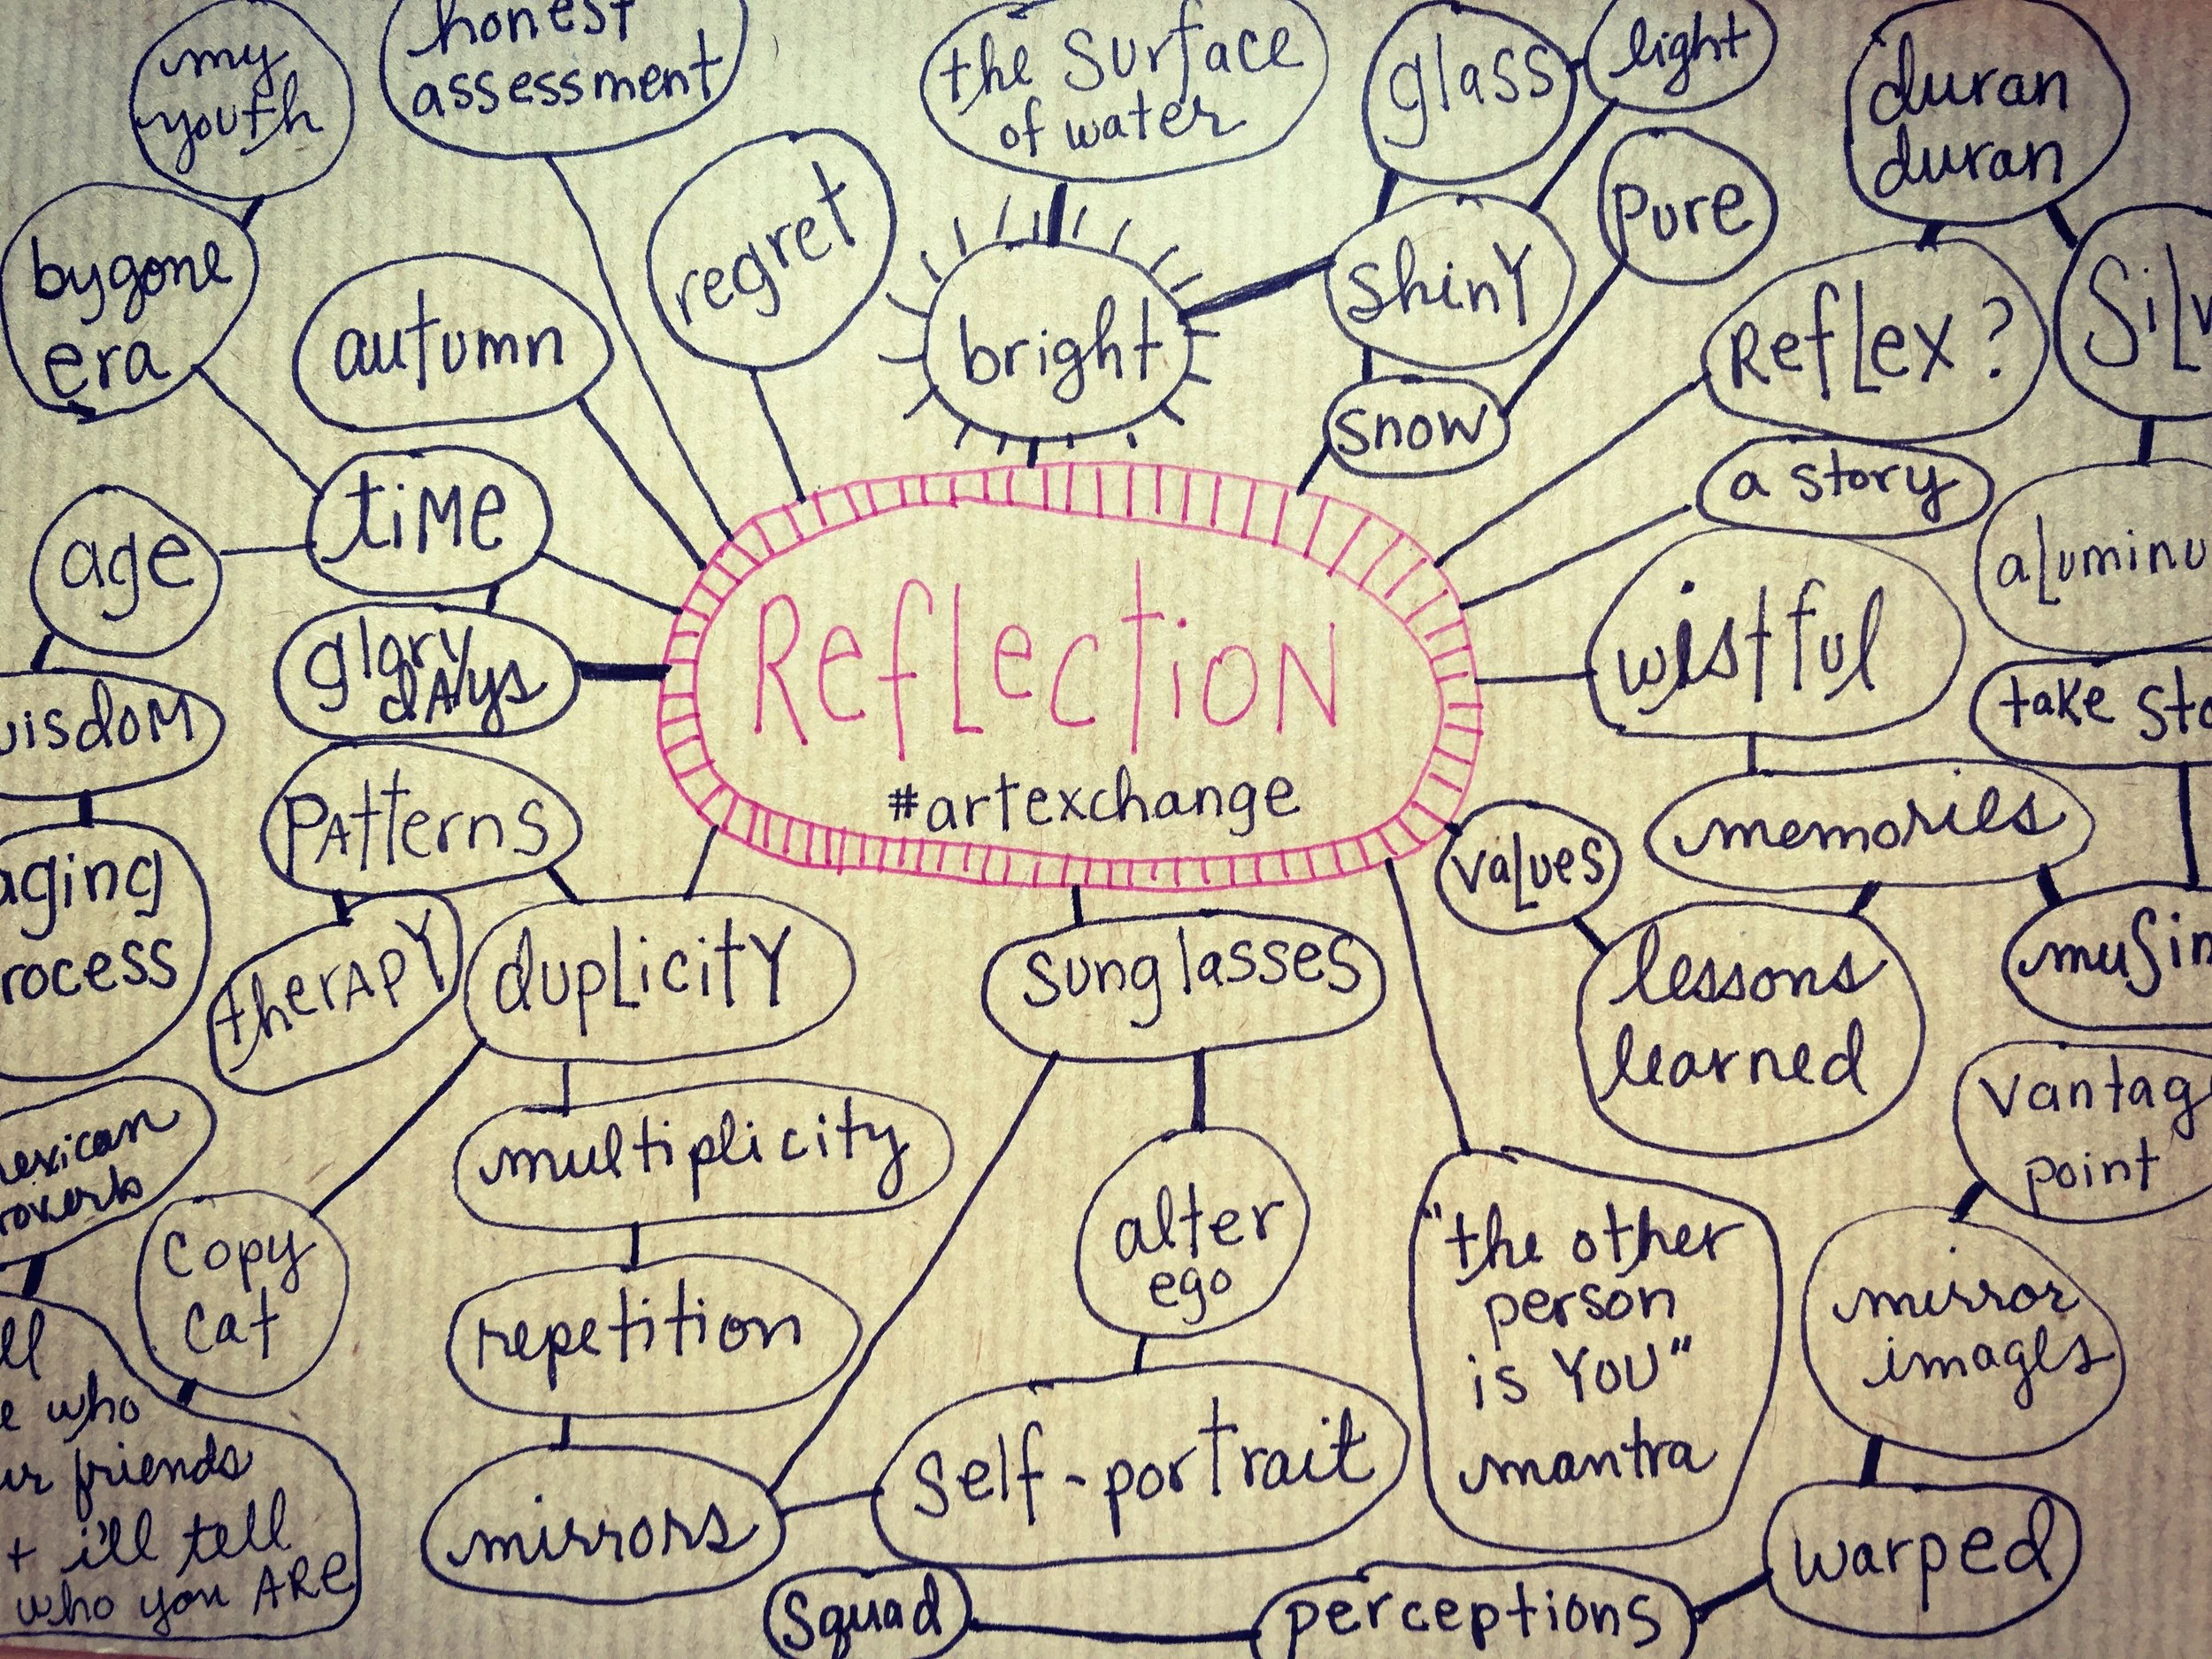 my
youth
honest
assessment
the surface
of water
glass
light
duran
duran
bygone
era
autumn
regret
bright
shiny
pure
snow
Reflex?
Silv
a story
aluminu
time
age
glory
days
wisdom
Reflection
#artexchange
wistful
take sto
memories
values
Patterns
therapy
aging
rocess
duplicity
sunglasses
lessons
learned
musin
vantag
point
multiplicity
alter
ego
exican
roverb
copy
cat
repetition
"the other
person
is YOU"
mantra
mirror
images
ell
e who
ur friends
+ i'll tell
who you ARE
mirrors
self-portrait
warped
squad
perceptions